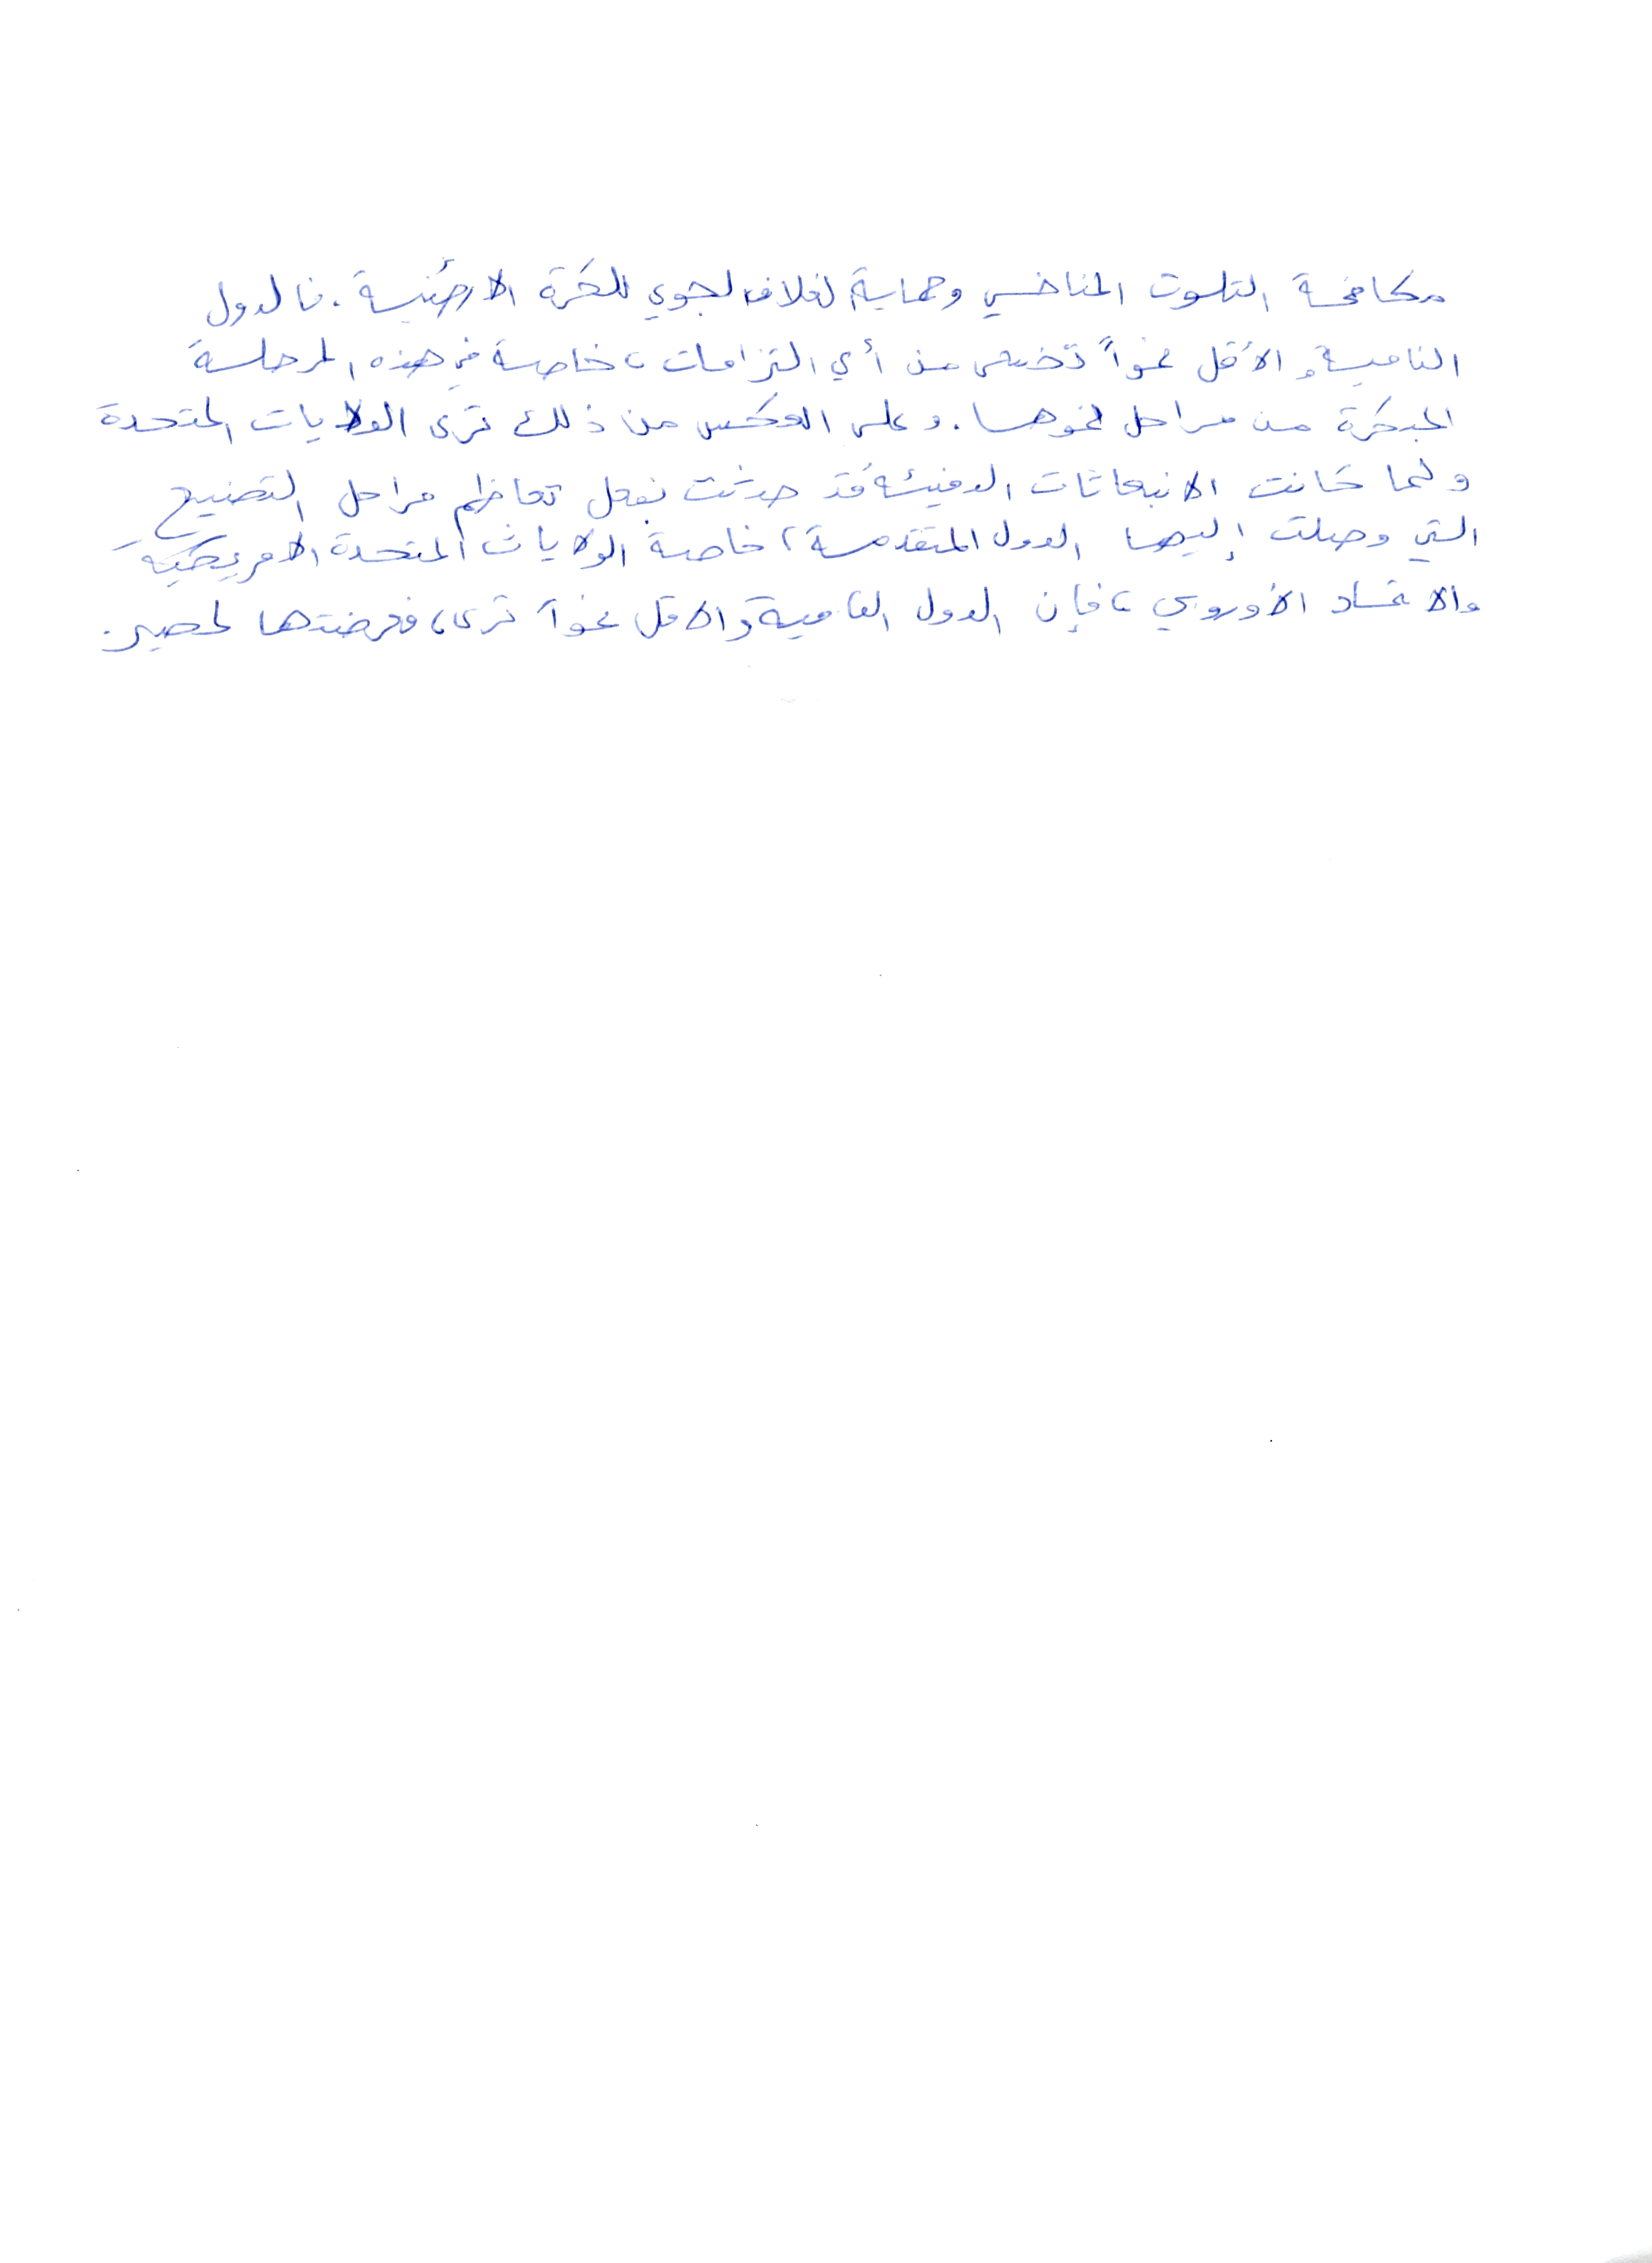 مكافحة التلوث المناخي وحماية الغلاف الجوي للكرة الارضية. فالدول
النامية والأقل نمواً تخشى من أي التزامات، خاصة في هذه المرحلة
المبكرة من مراحل نموها. وعلى العكس من ذلك ترى الولايات المتحدة
ولما كانت الانبعاثات الدفيئة قد حدثت بفعل تعاظم مراحل التصنيع
التي وصلت إليها الدول المتقدمة، خاصة الولايات المتحدة الامريكية
والاتحاد الأوروبي، فإن الدول النامية والاقل نمواً ترى، فعرضتها لمصير.